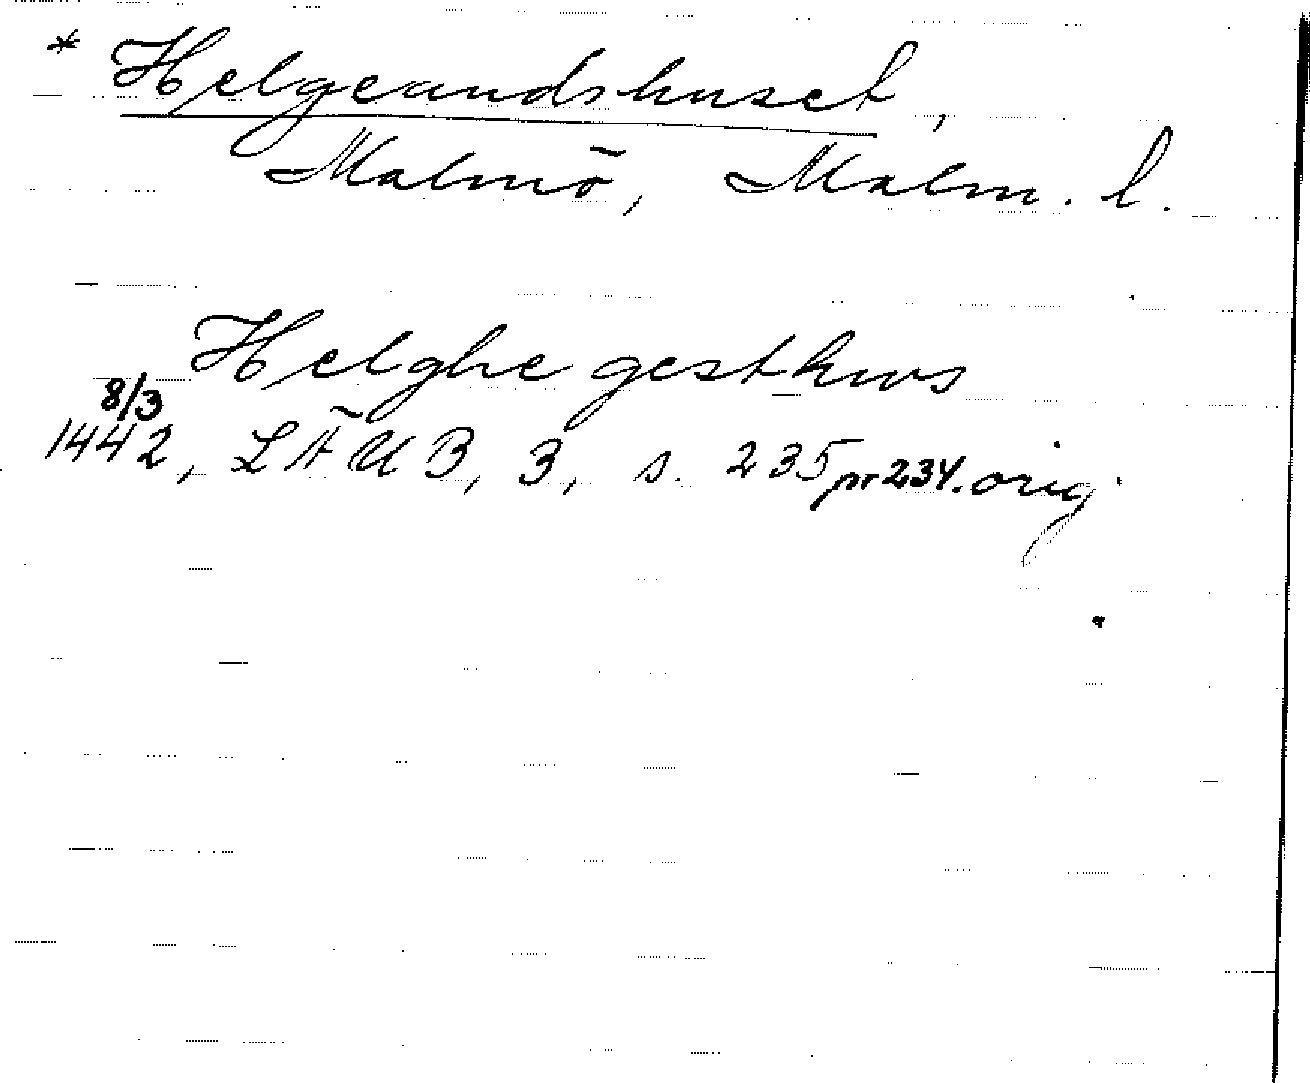 * Helgeandshuset,
Malmö, Malm. l.
Helghe gesthws
8/3
1442, LÄUB, 3, s. 235 nr 234. orig